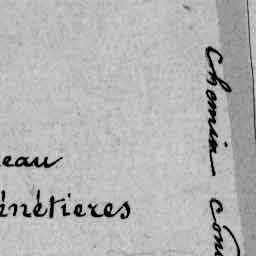 eau
énétieres
Chemin con